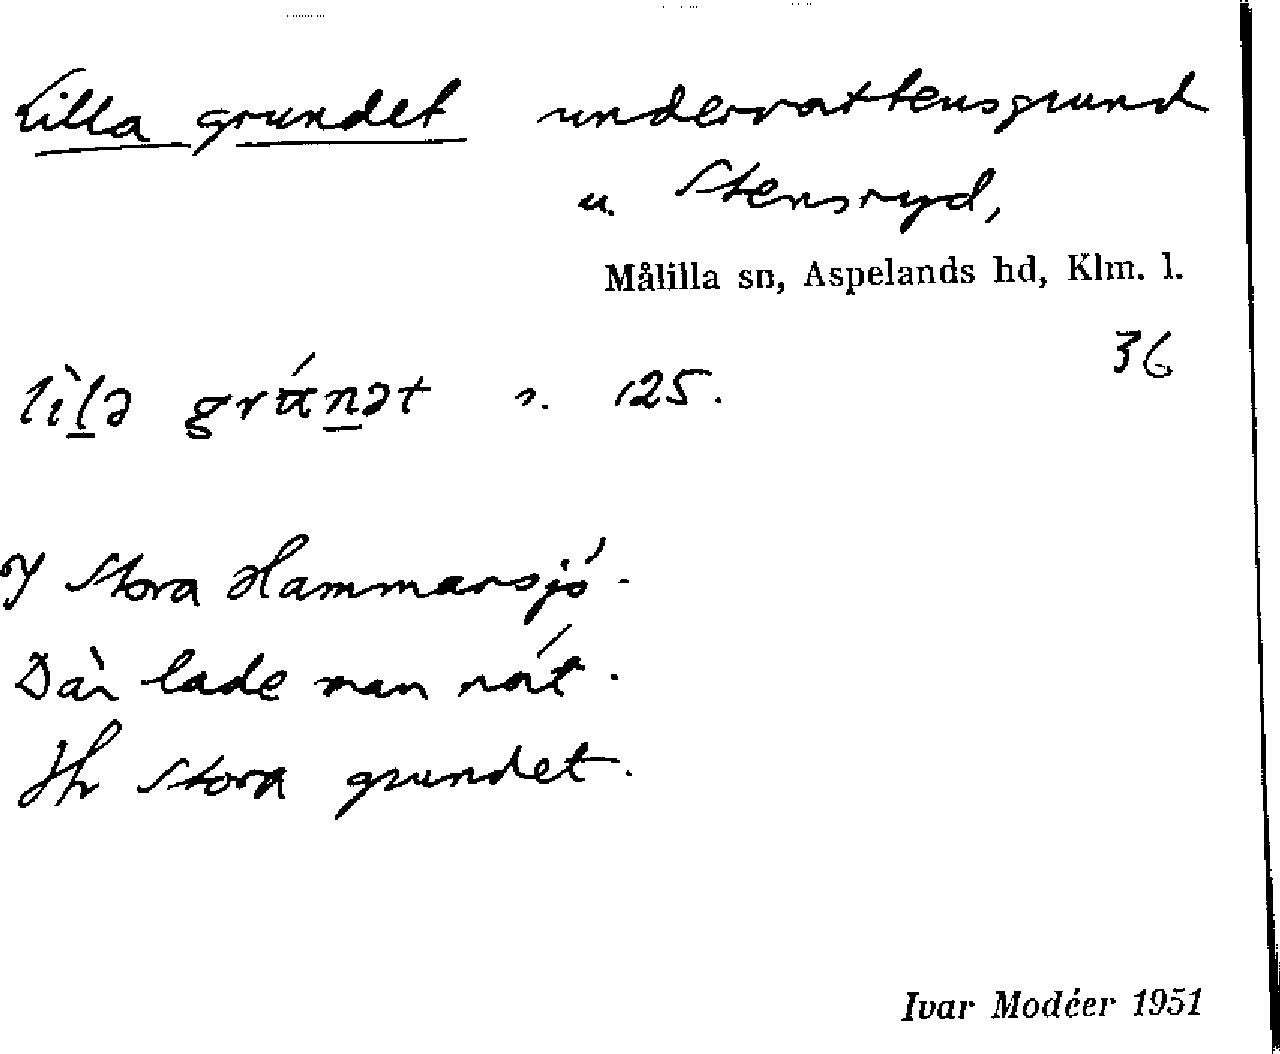 Lilla grundet undervattensgrund
u. Stensryd,
Målilla sn, Aspelands hd, Klm. l.
36
lìlə gránət s. 125.
I Stora Hammarsjö.
Där lade man nät.
Jfr Stora grundet.
Ivar Modéer 1951